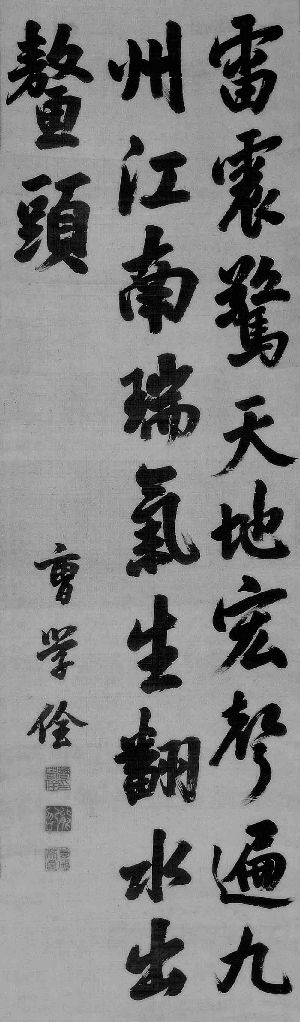 雷震驚天地宏聲遍九
州江南瑞氣生翻水出
鼇頭
曹学佺